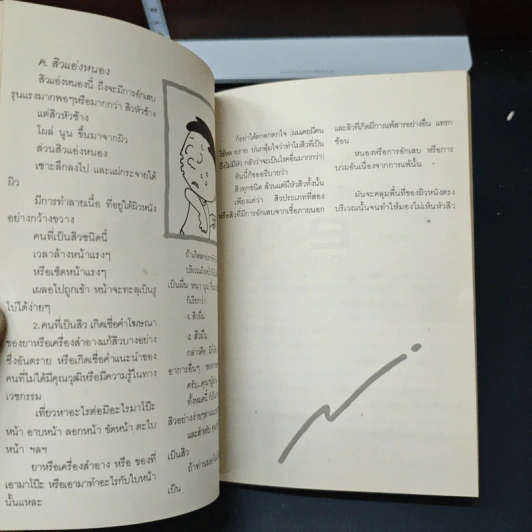 ค. สิวแอ่งหนอง
สิวแอ่งหนองนี้ ถึงจะมีการอักเสบ
รุนแรงมากพอๆหรือมากกว่า สิวหัวช้าง
แต่สิวหัวช้าง
โผล่ นูน ขึ้นมาจากผิว
ส่วนสิวแอ่งหนอง
เซาะลึกลงไป และแผ่กระจายใต้
ผิว
มีการทำลายเนื้อ ที่อยู่ใต้ผิวหนัง
อย่างกว้างขวาง
คนที่เป็นสิวชนิดนี้
เวลาล้างหน้าแรงๆ
หรือเช็ดหน้าแรงๆ
เผลอไปถูกเข้า หน้าจะทะลุเป็นรู
โบ๋ได้ง่ายๆ
2. คนที่เป็นสิว เกิดเชื่อคำโฆษณา
ของยาหรือเครื่องสำอางแก้สิวบางอย่าง
ซึ่งอันตราย หรือเกิดเชื่อคำแนะนำของ
คนที่ไม่ได้มีคุณวุฒิหรือมีความรู้ในทาง
เวชกรรม
เที่ยวหาอะไรต่อมิอะไรมาโป๊ะ
หน้า อาบหน้า ลอกหน้า ขัดหน้า ตะโบ
หน้า ฯลฯ
ยาหรือเครื่องสำอาง หรือ ของที่
เอามาโป๊ะ หรือเอามาทำอะไรกับใบหน้า
นั้นแหละ
เป็นผื่น หนา
ก็เรียกว่า
ง. สิวผื่น
ง. สิวผื่น
กล่าวคือ
อาการอื่นๆ
ครับ
ทั้งหมดนี้
สิวอย่างง่ายๆ
และสำหรับ
เป็นสิว
เป็น
ก้ออย่าได้ตกอกตกใจ (ผมเคยมีคน
ไข้หลายราย บ่นกลุ้มใจว่าทำไมสิวที่เป็น
ถึงไม่มีหัว กลัวว่าจะเป็นโรคอื่นมากกว่า)
อันนี้ก้อขออธิบายว่า
สิวทุกชนิด ล้วนแต่มีหัวสิวทั้งนั้น
เพียงแต่ว่า สิวประเภทที่สอง
หรือสิวที่มีการอักเสบจากเชื้อภายนอก
และสิวที่เกิดมีการแพ้สารอย่างอื่น แทรก
ซ้อน
หนองหรือการอักเสบ หรือการ
บวมอันเนื่องจากการแพ้นั้น
มันจะคลุมพื้นที่ของผิวหนังตรง
บริเวณนั้นจนทำให้มองไม่เห็นหัวสิว